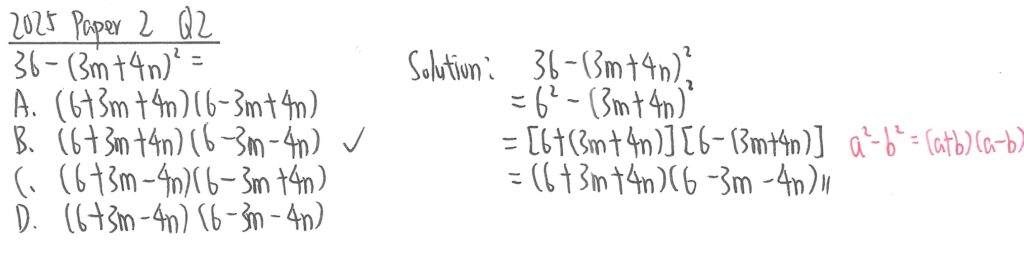 2025 Paper 2 Q2
36-(3m+4n)² =
A. (6+3m+4n)(6-3m+4n)
B. (6+3m+4n)(6-3m-4n) ✓
C. (6+3m-4n)(6-3m+4n)
D. (6+3m-4n)(6-3m-4n)
Solution: 36-(3m+4n)²
= 6² - (3m+4n)²
= [6+(3m+4n)][6-(3m+4n)] a²-b² = (a+b)(a-b)
= (6+3m+4n)(6-3m-4n)//